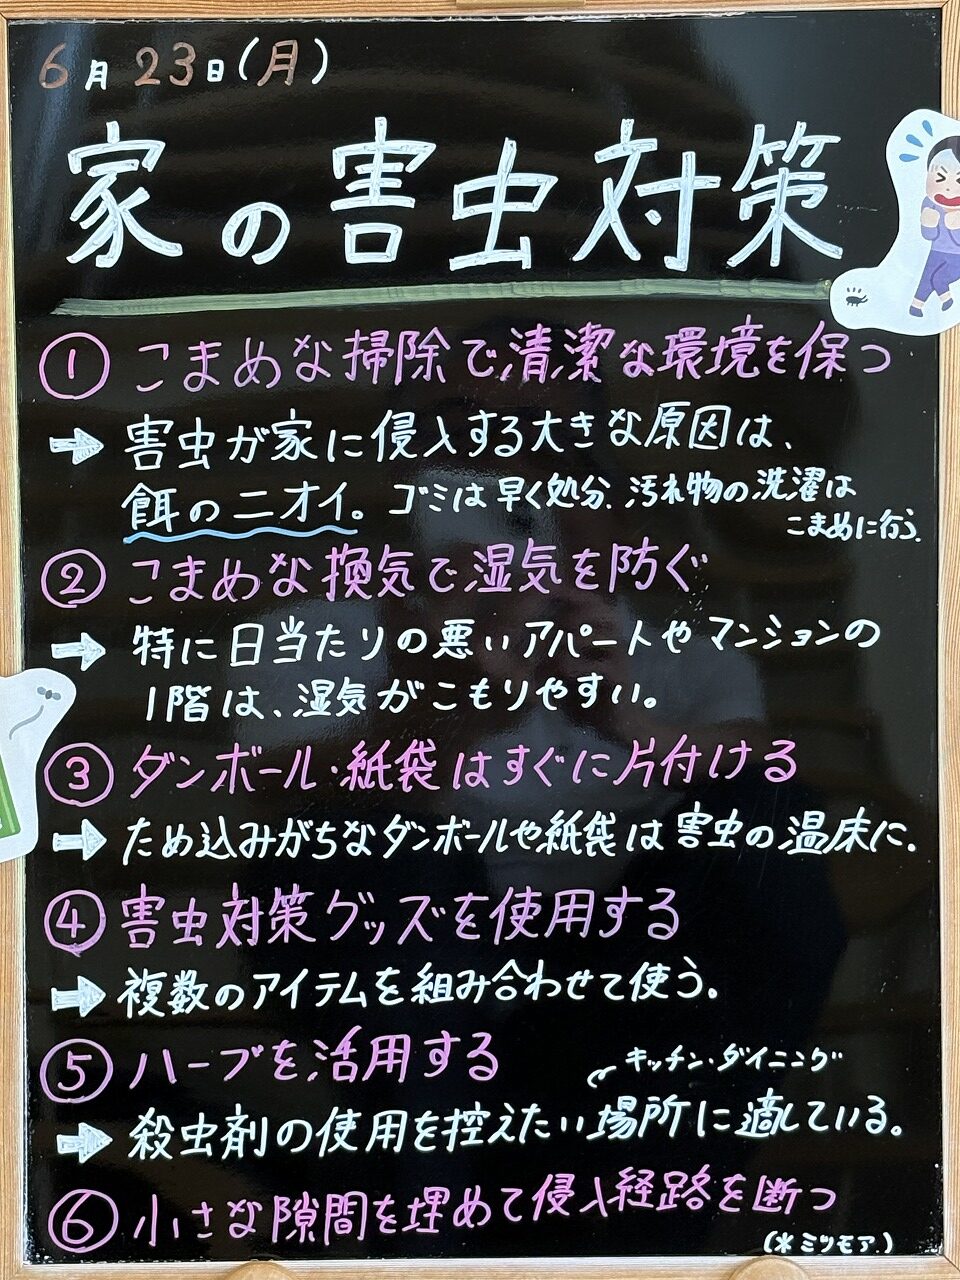 6月23日(月)
家の害虫対策
① こまめな掃除で清潔な環境を保つ
➡ 害虫が家に侵入する大きな原因は、
餌のニオイ。ゴミは早く処分、汚れ物の洗濯は
こまめに行う。
② こまめな換気で湿気を防ぐ
➡ 特に日当たりの悪いアパートやマンションの
1階は、湿気がこもりやすい。
③ ダンボール・紙袋はすぐに片付ける
➡ ため込みがちなダンボールや紙袋は害虫の温床に。
④ 害虫対策グッズを使用する
➡ 複数のアイテムを組み合わせて使う。
⑤ ハーブを活用する
キッチン・ダイニング
➡ 殺虫剤の使用を控えたい場所に適している。
⑥ 小さな隙間を埋めて侵入経路を断つ
(※ミツモア)